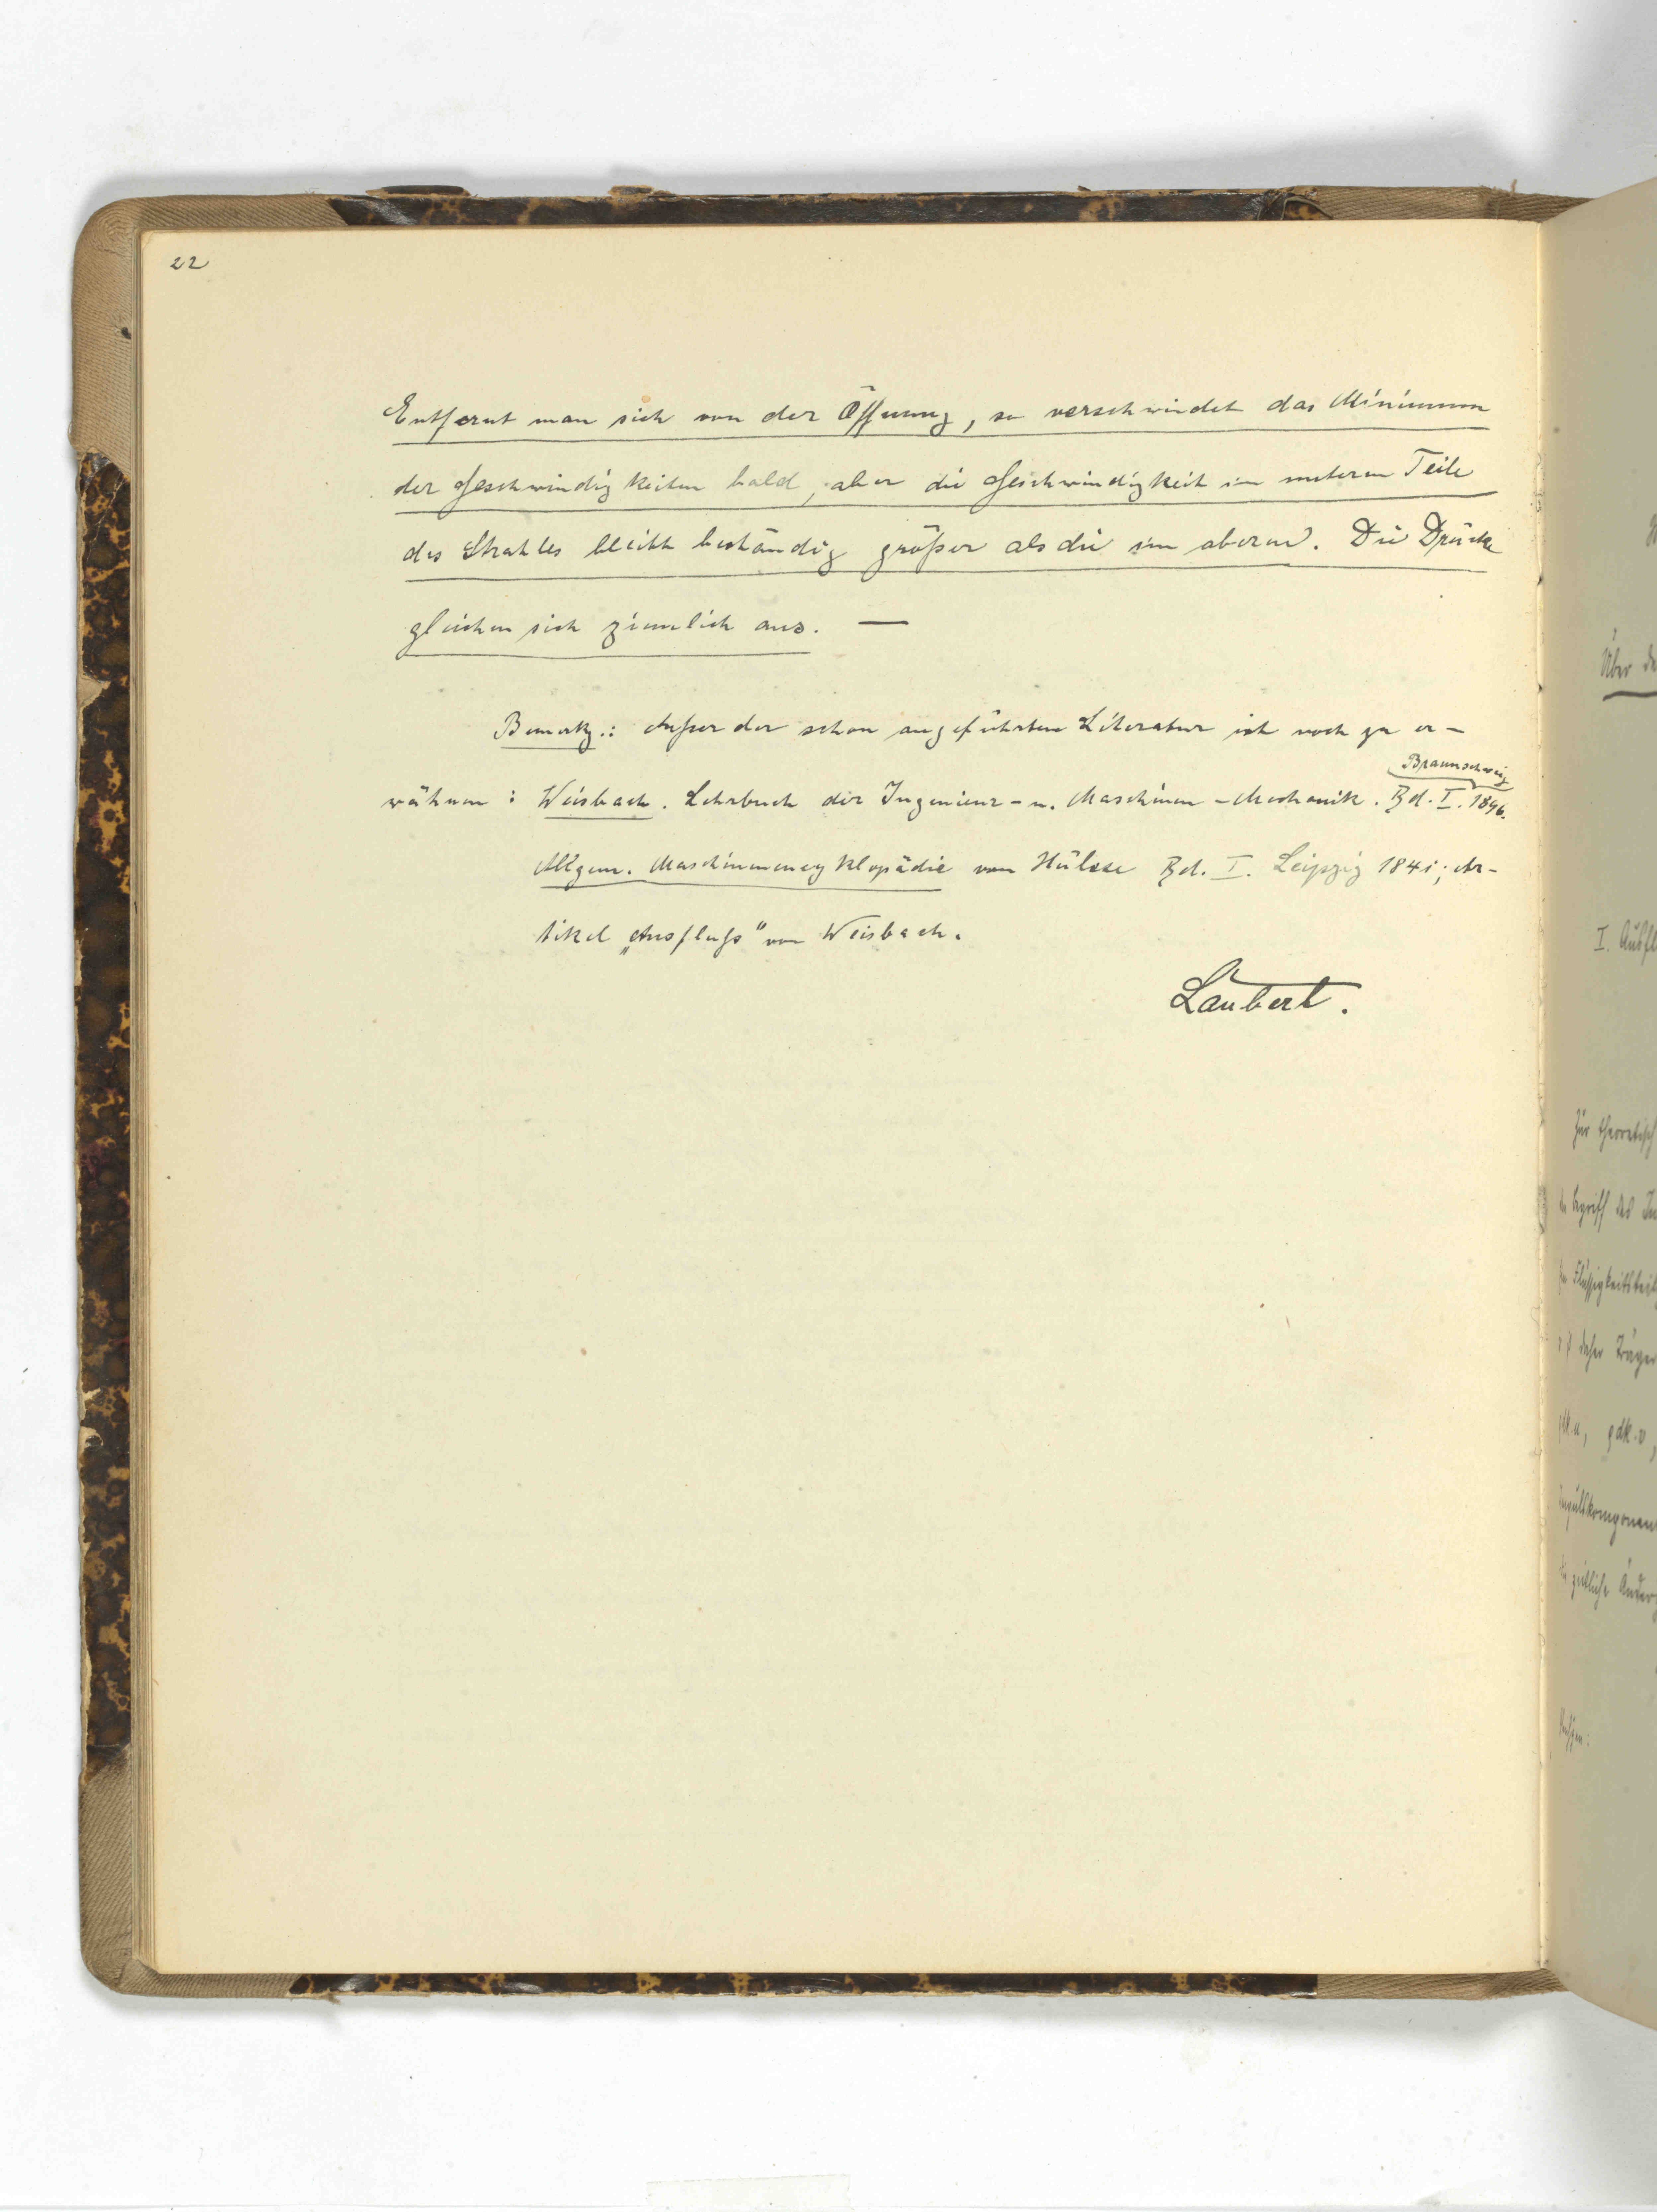 22
Entfernt man sich von der Öffnung, so verschwindet das Minimum
der Geschwindigkeiten bald, aber die Geschwindigkeit im unteren Teile
des Strahles bleibt beständig größer als die im oberen. Die Drücke
gleichen sich ziemlich aus. —
Bemerkg.: Außer der schon angeführten Literatur ist noch zu er-
Braunschweig
wähnen: Weisbach. Lehrbuch der Ingenieur- u. Maschinen-Mechanik. Bd. I. 1846.
Allgem. Maschinenencyklopädie von Hülsse Bd. I. Leipzig 1841; Ar-
tikel „Ausfluß" von Weisbach.
Laubert.
Über de
I. Ausfl
Zur theoretisch
Begriff des
Flüssigkeitsteil
daher Träger
zeitliche Änder